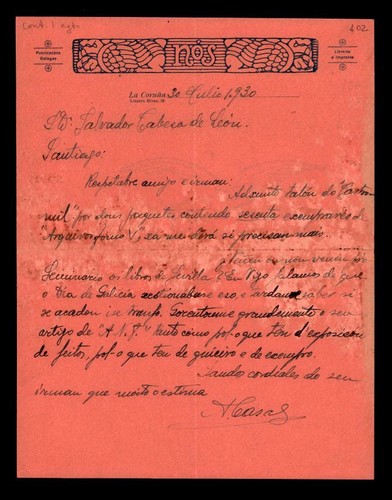 Cont. 1 agto.
402
Publicacións
Galegas
NÓS
Librería
e Imprenta
La Coruña 30 Julio, 1930
Linares Rivas, 50
Sr. D. Salvador Cabeza de León.
Santiago:
Respetabre amigo e irman:
Adxunto talón do "Castro
mil" por dous paquetes contendo sesenta exemprares de
"Arquivos tomo V", xa me dirá si precisan mais.
vender no
Seminario os libros de Sevilla? En Vigo falamos de que
o Día de Galicia xestionábase eso, e agardamos saber si
se acadou ise trunfo. Sorcutoume grandemente o seu
artigo de "A.N.T." tanto como pol-o que ten d'exposición
de feitos, pol-o que ten de guieiro e de exempro.
Saúdo cordiales do seu
irman que moito o estima
A. Casal